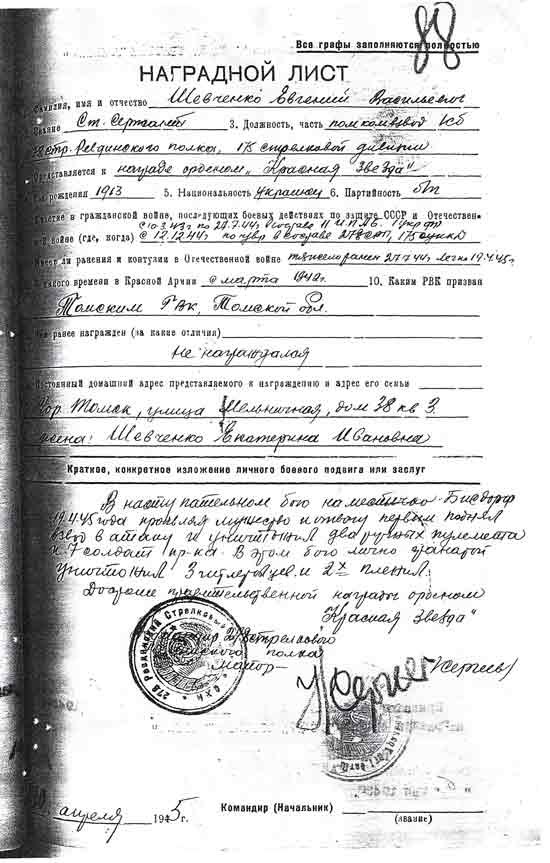 88
Все графы заполняются полностью
НАГРАДНОЙ ЛИСТ
Фамилия, имя и отчество Шевченко Евгений Васильевич
Звание Ст. Сержант 3. Должность, часть помкомвзвод
стр. полка, 175 стрелковой дивизии
Представляется к награде орденом „Красная Звезда"
Год рождения 1913 5. Национальность украинец 6. Партийность
Участие в гражданской войне, последующих боевых действиях по защите СССР и Отечествен-
ной войне (где, когда) с 12.12.44 по в составе 278
Имеет ли ранения и контузии в Отечественной войне тяжело ранен 27.7.44 легко 19.4.45г.
С какого времени в Красной Армии с марта 10. Каким РВК призван
Томским ГВК, Томской обл.
Чем ранее награжден (за какие отличия)
Не награждался
Постоянный домашний адрес представляемого к награждению и адрес его семьи
Гор. Томск, улица Мельничная, дом 38 кв 3.
жена: Шевченко Екатерина Ивановна
Краткое, конкретное изложение личного боевого подвига или заслуг
В наступательном бою на местечко Бисдорф
19.4.45 года проявляя мужество и отвагу первым поднял
взвод в атаку и уничтожил два ручных пулемета
и 7 солдат пр-ка. В этом бою лично гранатой
уничтожил 3 гитлеровцев и 2х пленил.
Достоин правительственной награды орденом
„Красная Звезда"
278 Стрелковый
Командир 278 стрелкового
полка
Майор
апреля 1945г.
Командир (Начальник)
(звание)